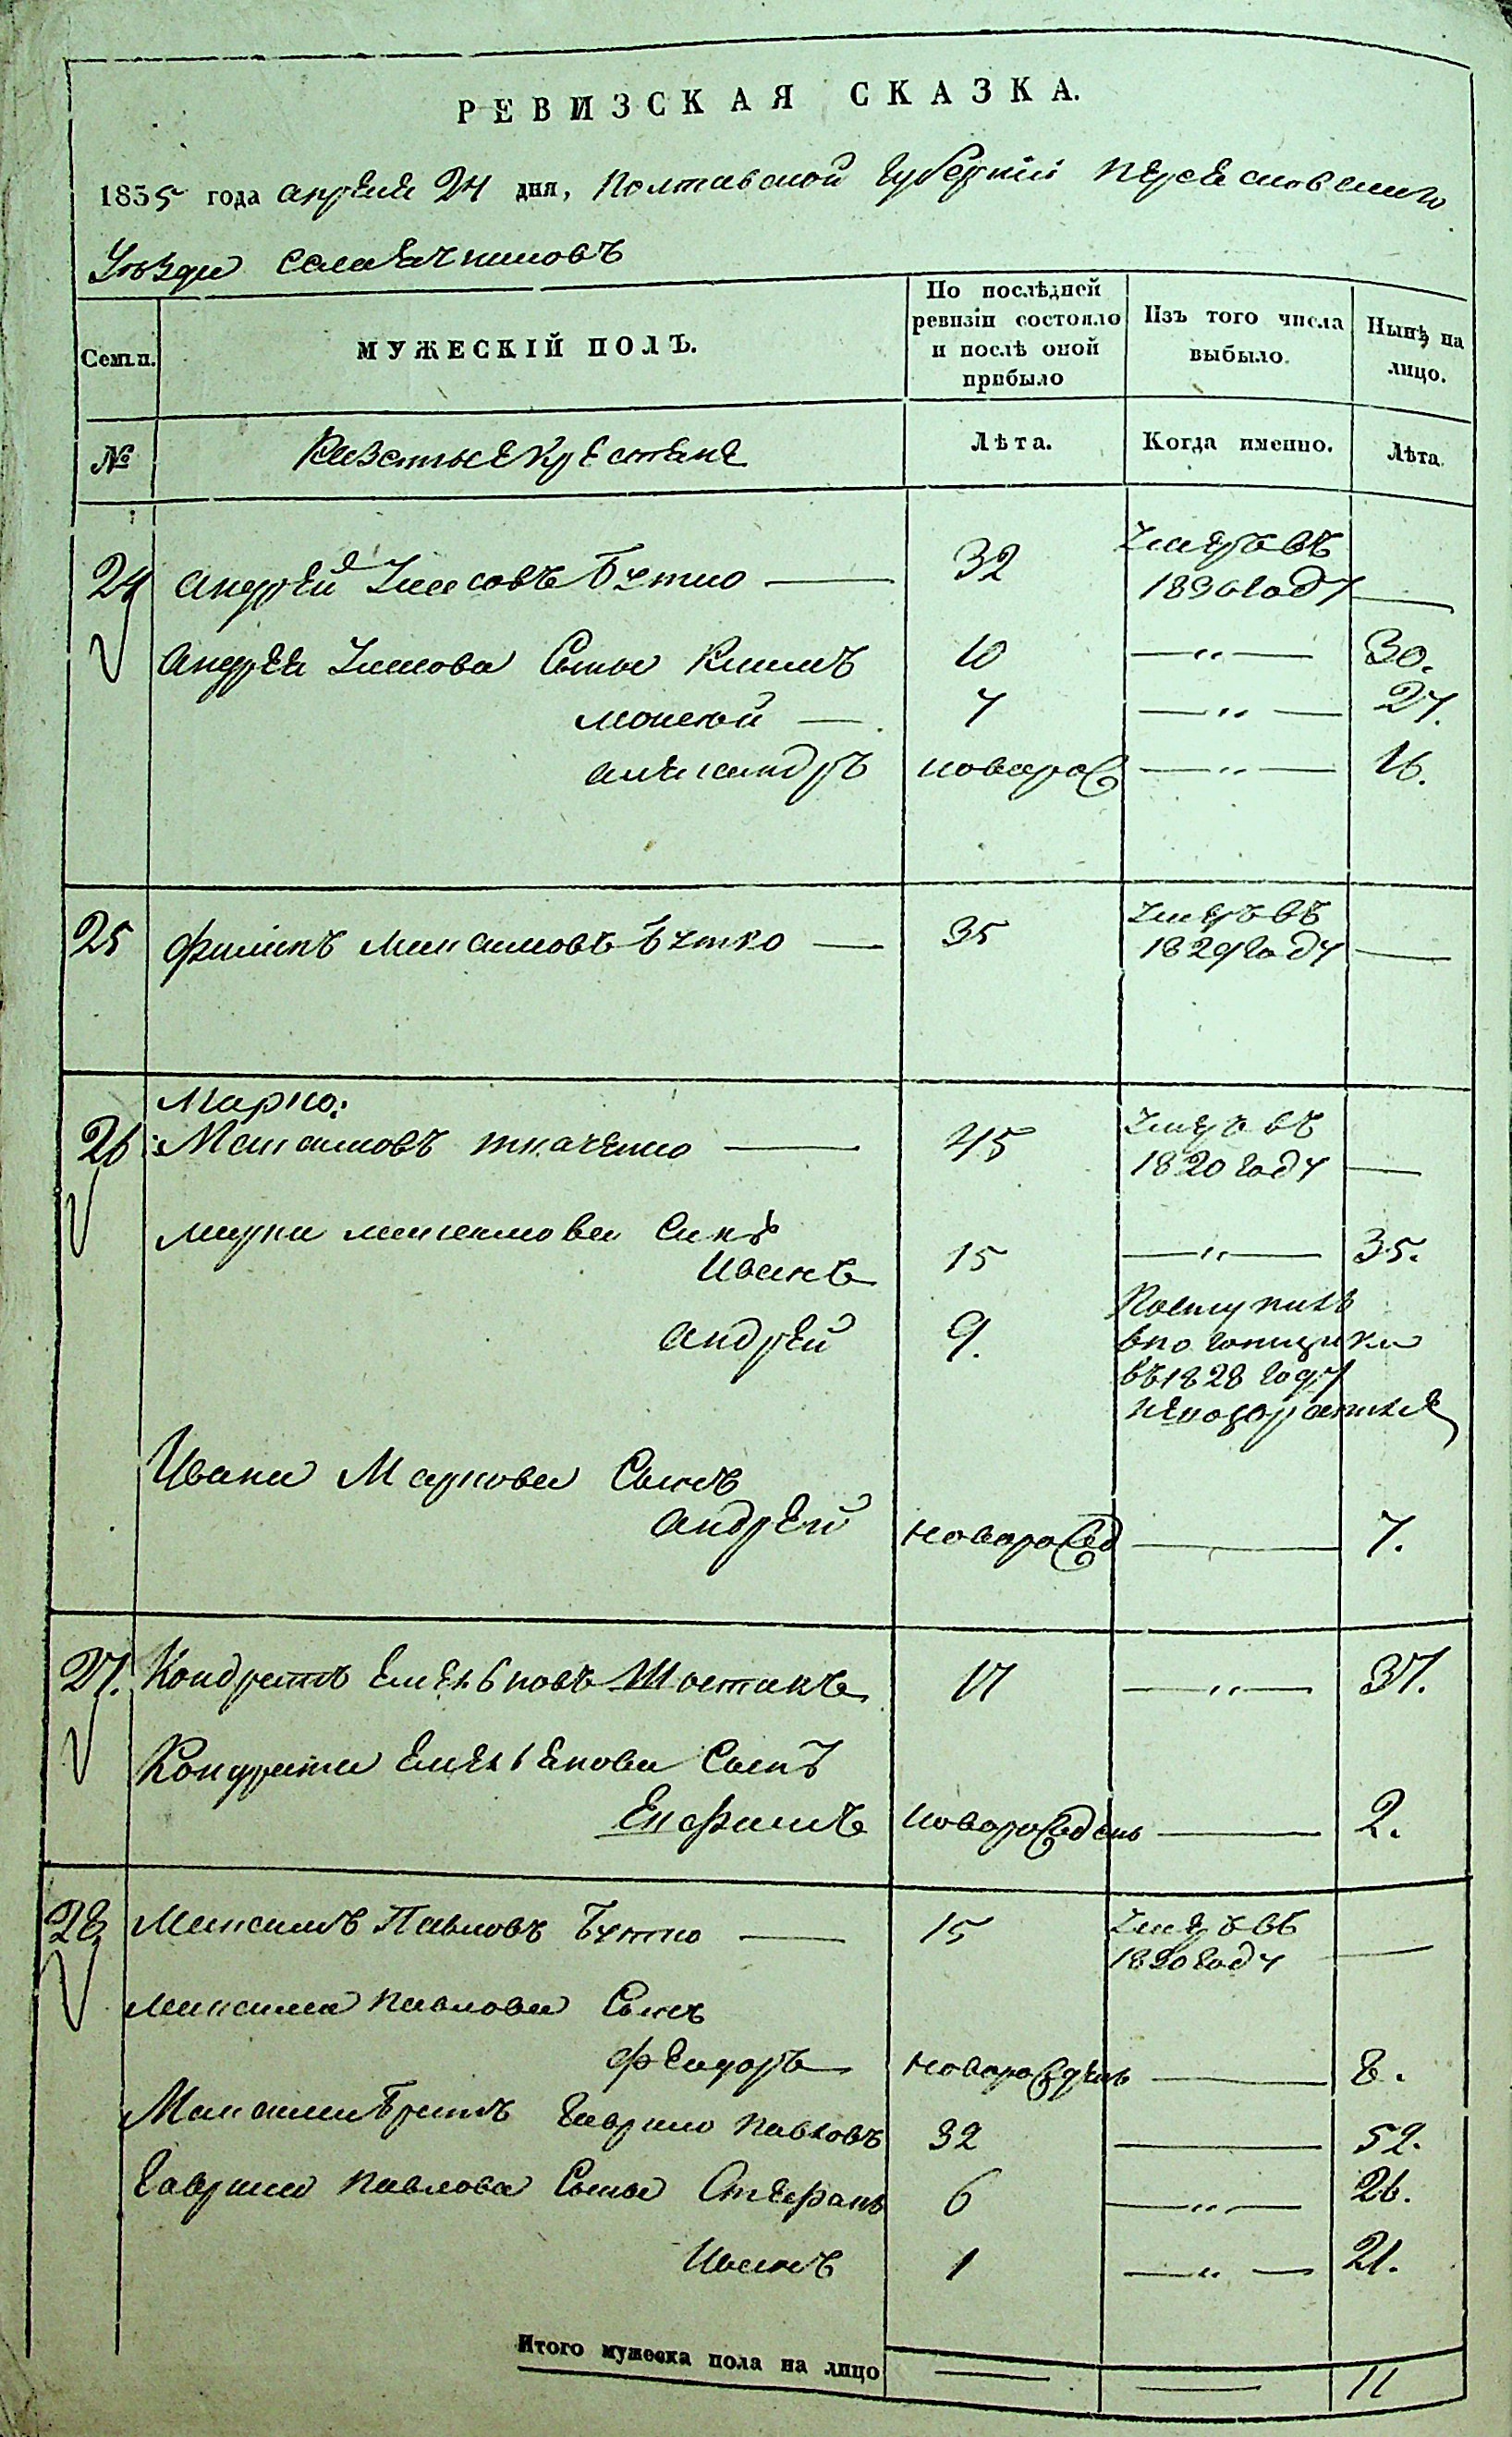 РЕВИЗСКАЯ СКАЗКА.
1835 года апреля 24 дня, Полтавской губернии Переясловского
Уезда села
Семьи. МУЖЕСКІЙ ПОЛЪ. По послѣдней ревизіи состояло и послѣ оной прибыло Изъ того числа выбыло. Нынѣ на лицо.
№ Лѣта. Когда именно. Лѣта.
24 Андрей Бутко — 32 умеръ въ 1830 году —
Андрея сыны Климъ 10 — „ — 30.
Моисей — 7 — „ — 27.
Александръ новорож — „ — 16.
25 Филипъ Максимовъ Бутко — 35 умеръ въ 1829 году —
Марко:
26 Максимовъ Ткаченко — 45 умеръ въ 1820 году —
Марка Максимова Синъ
Иванъ 15 — „ — 35.
Андрей 9. Поступилъ в погонщики въ 1828 году
Ивана Маркова Сынъ
Андрей новорожд — 7.
27. Кондратъ Емельяновъ Шостакъ 17 — „ — 37.
Кондрата Емельянова Сынъ
Ефимъ новорожденъ — 2.
28 Максимъ Павловъ Бутко — 15 умеръ въ 1830 году —
Максима Павлова Сынъ
Феидоръ новорожденъ — 8.
Максима братъ Гаврило Павловъ 32 — 52.
Гаврила Павлова Сыны Стефанъ 6 — „ — 26.
Иванъ 1 — „ — 21.
Итого мужеска пола на лицо — — 11